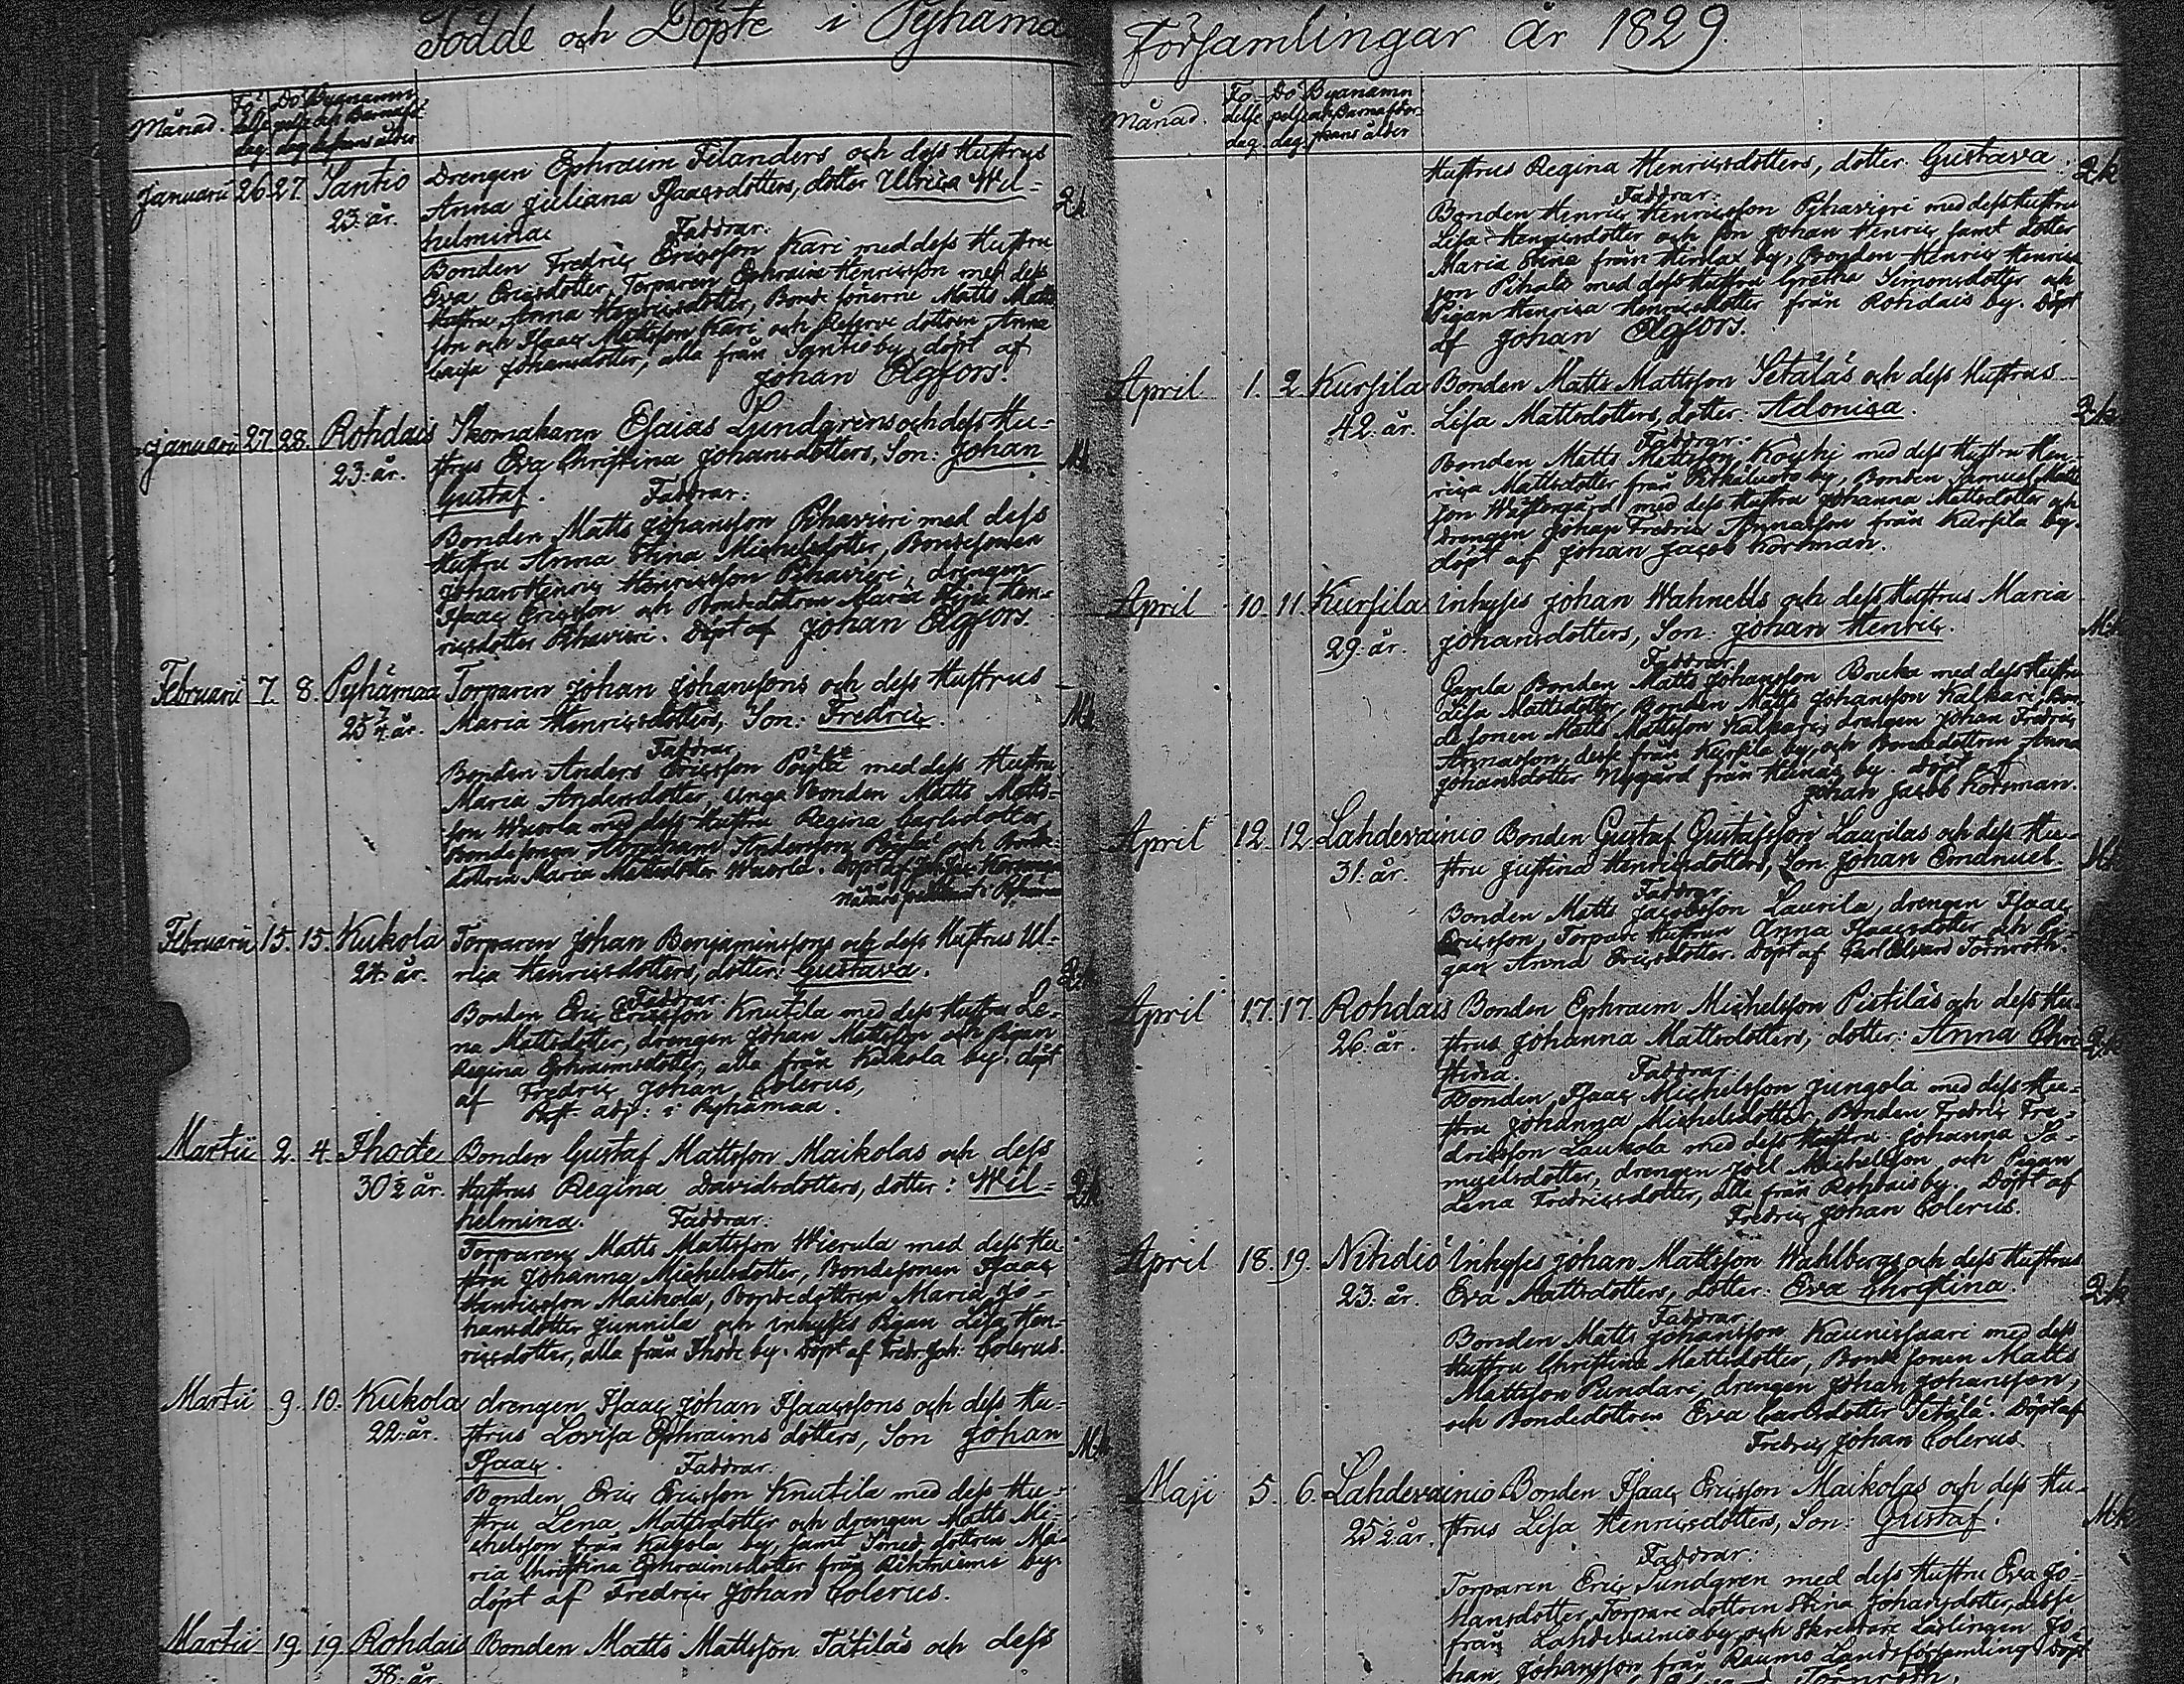 Födde och Döpte i Pyhäma
Månad. Fö- Dö- Bynamn
delse pelse och Barnaföd
dag. dag. derskans ålder
Januarii 26. 27. Santio Drengen Ephraim Felanders och dess Hustrus
23. år. Anna Juliana Isaacsdotters, dotter Ulrica Wil=
helmina. Faddrar:
Bonden Fredric Ericsson Kari med dess Hustru
Eva Ericsdotter, Torparen Ephraim Henricsson med dess
Hustru Anna Henricsdotter, Bonde sönerne Matts Matts
son och Isaac Mattsson Kari och Reserve dottren Anna
Caisa Johansdotter, alla från Santio by, döpt af
Johan Elgfors.
Januarii 27. 28. Rohdais Skomakaren Esaias Lundgrens och dess Hu=
23. år. strus Eva Christina Johansdotters, Son: Johan
Gustaf. Faddrar:
Bonden Matts Johansson Pihavieri med dess
Hustru Anna Stina Michelsdotter, Bondesonen
Johan Henric Henricsson Pihavieri, drengen
Isaac Ericsson och Bondedottren Maria Stina Hen=
ricsdotter Pihavieri. Döpt af Johan Elgfors.
Februarii 7. 8. Pyhämaa Torparen Johan Johanssons och dess Hustrus
25 år. Maria Henricsdotters, Son: Fredric.
Faddrar
Bonden Anders Ericsson Pöytä med dess Hustru
Maria Andersdotter, Unga Bonden Matts Matts=
son Wuorla med dess Hustru Regina Carlsdotter
Bondesonen Abraham Andersson och Bonde
dottren Maria Mattsdotter Wuorla. Döpt af
Februarii 15. 15. Kukola Torparen Johan Benjaminssons och dess Hustrus Ul=
24. år. rica Henricsdotters, dotter: Gustava.
Faddrar:
Bonden Eric Ericsson Knutila med dess Hustru Le=
na Mattsdotter, drengen Johan Mattsson och Pigan
Regina Ephraimsdotter, alla från Kukola by. döpt
af Fredric Johan Colerus,
Past. adj: i Pyhämaa.
Martii 2. 4. Ihode Bonden Gustaf Mattsson Maikolas och dess
30 ½ år. Hustrus Regina Davidsdotters, dotter: Wil=
helmina. Faddrar:
Torparen Matts Mattsson Wierula med dess Hu=
stru Johanna Michelsdotter, Bondesonen Isaac
Henricsson Maikola, Bondedottren Maria Jo=
hansdotter Junnila och inhyses Pigan Lisa Hen=
ricsdotter, alla från Ihode by. Döpt af Fredr Joh: Colerus.
Martii 9. 10. Kukola drengen Isaac Johan Isaacssons och dess Hu=
22. år. strus Lovisa Ephraims dotters, Son Johan
Isaac. Faddrar:
Bonden Eric Ericsson Knutila med dess Hu=
stru Lena Mattsdotter och drengen Matts Mi=
chelsson från Kukola by, samt dottren Ma=
ria Christina Ephraimsdotter från by.
döpt af Fredric Johan Colerus.
Martii 19. 19. Rohdais Bonden Matts Mattsson Tätiläs och dess
38. år.
Församlingar år 1829.
Månad. Fö- Dö- Bynamn
delse pelse och Barnaföder-
dag. dag. skans ålder
Hustrus Regina Henricsdotters, dotter: Gustava.
Faddrar:
Bonden Henric Henricsson Pihavieri med dess Hustru
Lisa Henricsdotter och son Johan Henric samt dotter
Maria Stina från by, Bonden Henric Henrics
son Pihals med dess Hustru Gretha Simonsdotter och
Pigan Henrica Henricsdotter från Rohdais by. Döpt
af Johan Elgfors.
April 1. 2. Kursila Bonden Matts Mattsson Setäläs och dess Hustrus
42. år. Lisa Mattsdotters, dotter: Adonica.
Faddrar:
Bonden Matts Mattsson Kouki med dess Hustru Hen=
rica Mattsdotter från Pitkäluoto by, Bonden Samuel Matts
son Westergård med dess Hustru Johanna Mattsdotter och
drengen Johan Fredric Annasson från Kursila by.
döpt af Johan Jacob Korsman.
April 10. 11. Kursila Inhyses Johan Wahnells och dess Hustrus Maria
29. år. Johansdotters, Son: Johan Henric.
Faddrar
Gamla Bonden Matts Johansson Bouka med dess Hustru
Lisa Mattsdotter, Bonden Matts Johansson Kalkari, Bon=
de sonen Matts Mattsson Kalkari, drengen Johan Fredric
Annasson, desse från Kursila by, och Bondedottren Anna
Johansdotter Nygård från by. Döpt af
Johan Jacob Korsman.
April 12. 12. Lahdevainio Bonden Gustaf Gustafsson Laurilas och dess Hu=
31. år. stru Justina Henricsdotters, Son Johan Emanuel.
Faddrar
Bonden Matts Jacobsson Laurila, drengen Isaac
Ericsson, Torpare Hustrun Anna Isaacsdotter och Pi=
gan Anna Ericsdotter. Döpt af Carl Edvard Törnroth.
April 17. 17. Rohdais Bonden Ephraim Michelsson Pietiläs och dess Hu=
26. år. strus Johanna Mattsdotters, dotter: Anna Chri
stina. Faddrar
Bonden Isaac Michelsson Jungola med dess Hu=
stru Johanna Michelsdotter, Bonden Fredric Fre=
dricsson Laukola med dess Hustru Johanna Sa=
muelsdotter, drengen Joel Michelsson och Pigan
Lena Fredricsdotter, alla från Rohdais by. Döpt af
Fredric Johan Colerus.
April 18. 19. Nihdiö Inhyses Johan Mattsson Wahlbergs och dess Hustrus
23. år. Eva Mattsdotters, dotter: Eva Christina.
Faddrar
Bonden Matts Johansson Kaunissaari med dess
Hustru Christina Mattsdotter, Bonde sonen Matts
Mattsson Pundari, drengen Johan Johansson,
och Bondedottren Eva Carlsdotter Setälä. Döpt af
Fredric Johan Colerus.
Maji 5. 6. Lahdevainio Bonden Isaac Ericsson Maikolas och dess Hu=
25 ½ år. strus Lisa Henricsdotters, Son: Gustaf.
Faddrar:
Torparen Eric Sundgren med dess Hustru Eva Jo=
hansdotter, Torpare dottren Stina Johansdotter, desse
från Lahdevainio by, och Skreddare Lärlingen Jo=
han Johansson från Raumo Landsförsamling. Döpt
Törnroth.